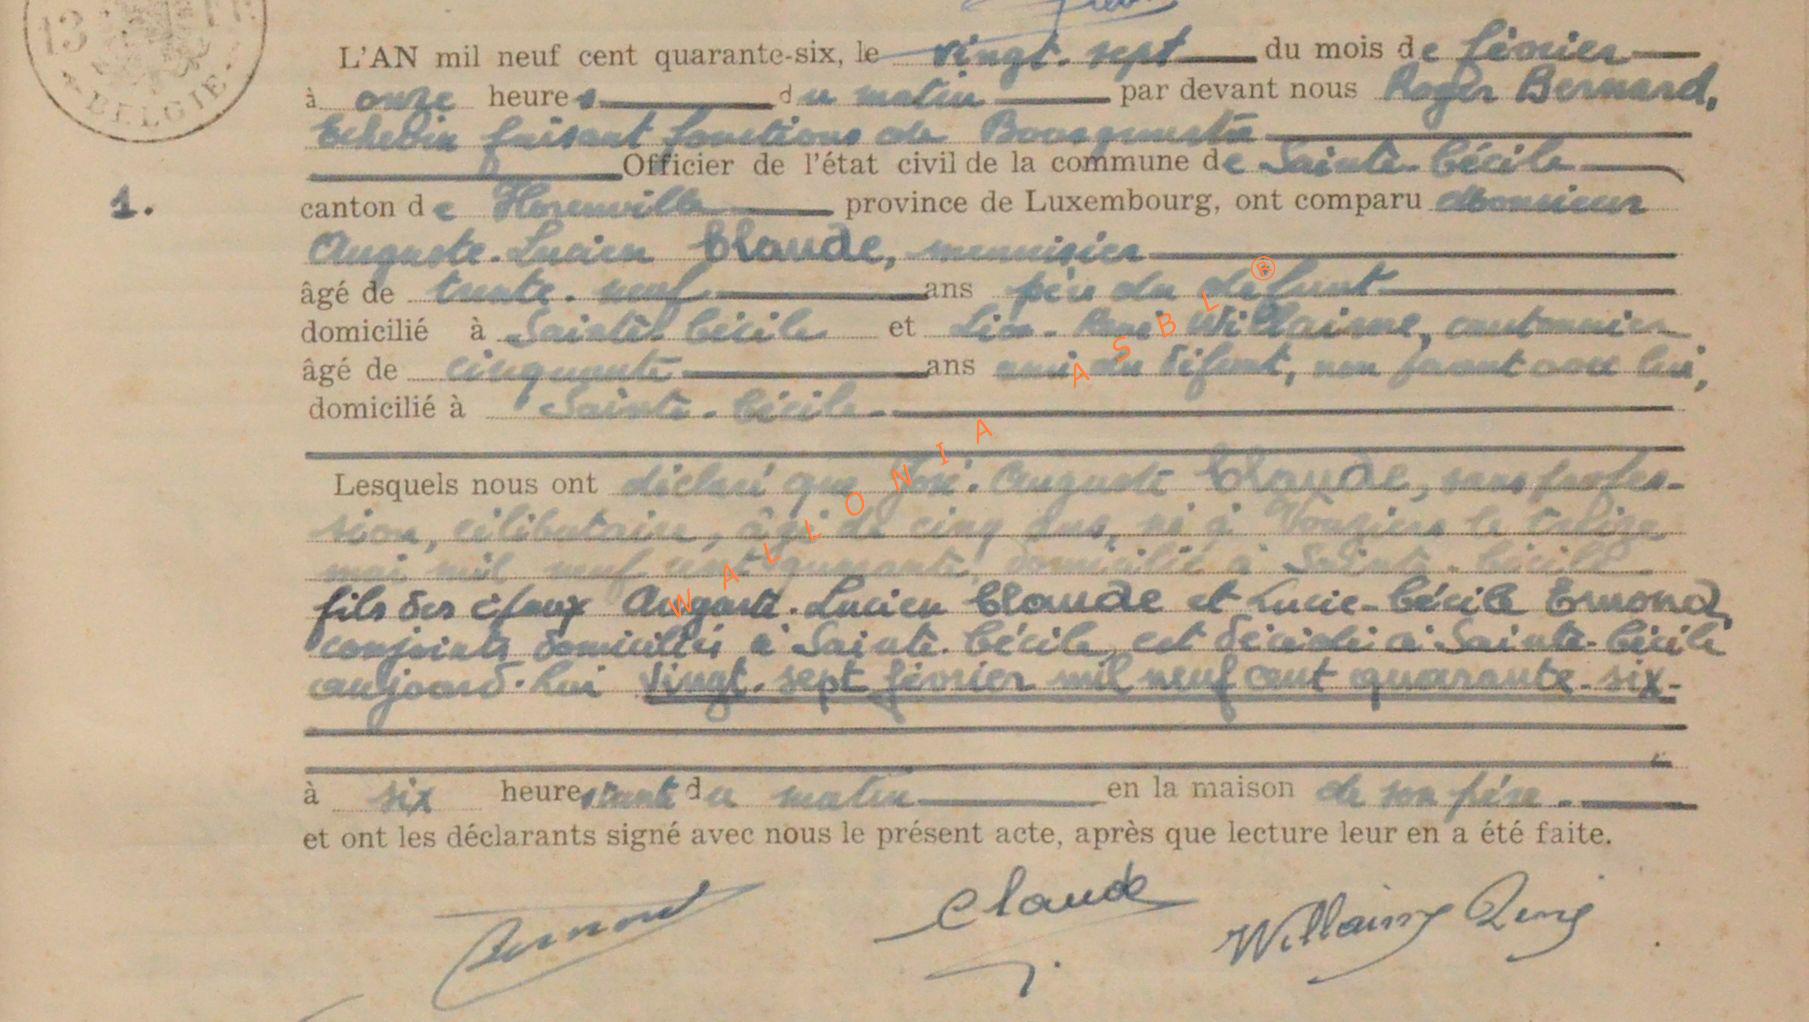 13
* BELGIE -
L'AN mil neuf cent quarante-six, le vingt-sept du mois de février
à onze heures du matin par devant nous Roger Bernard,
Echevin faisant fonctions de Bourgmestre
Officier de l'état civil de la commune de Sainte-Cécile
1.
canton de Florenville province de Luxembourg, ont comparu Monsieur
Auguste-Lucien Claude, menuisier
âgé de trente-neuf ans père du défunt
domicilié à Sainte-Cécile et René Willaime, cantonnier
âgé de cinquante ans ami du défunt, non parent avec lui,
domicilié à Sainte-Cécile
Lesquels nous ont déclaré que José-Auguste Claude, sans profes-
sion, célibataire, âgé de cinq ans, né à Vouziers le treize
mai mil neuf cent quarante, domicilié à Sainte-Cécile
fils des époux Auguste-Lucien Claude et Lucie-Cécile Ermond,
conjoints domiciliés à Sainte-Cécile, est décédé à Sainte-Cécile
aujourd'hui vingt-sept février mil neuf cent quarante-six-
à six heures trente du matin en la maison de son père.
et ont les déclarants signé avec nous le présent acte, après que lecture leur en a été faite.
Claude
Willaime René
WALLONIA ASBL ®